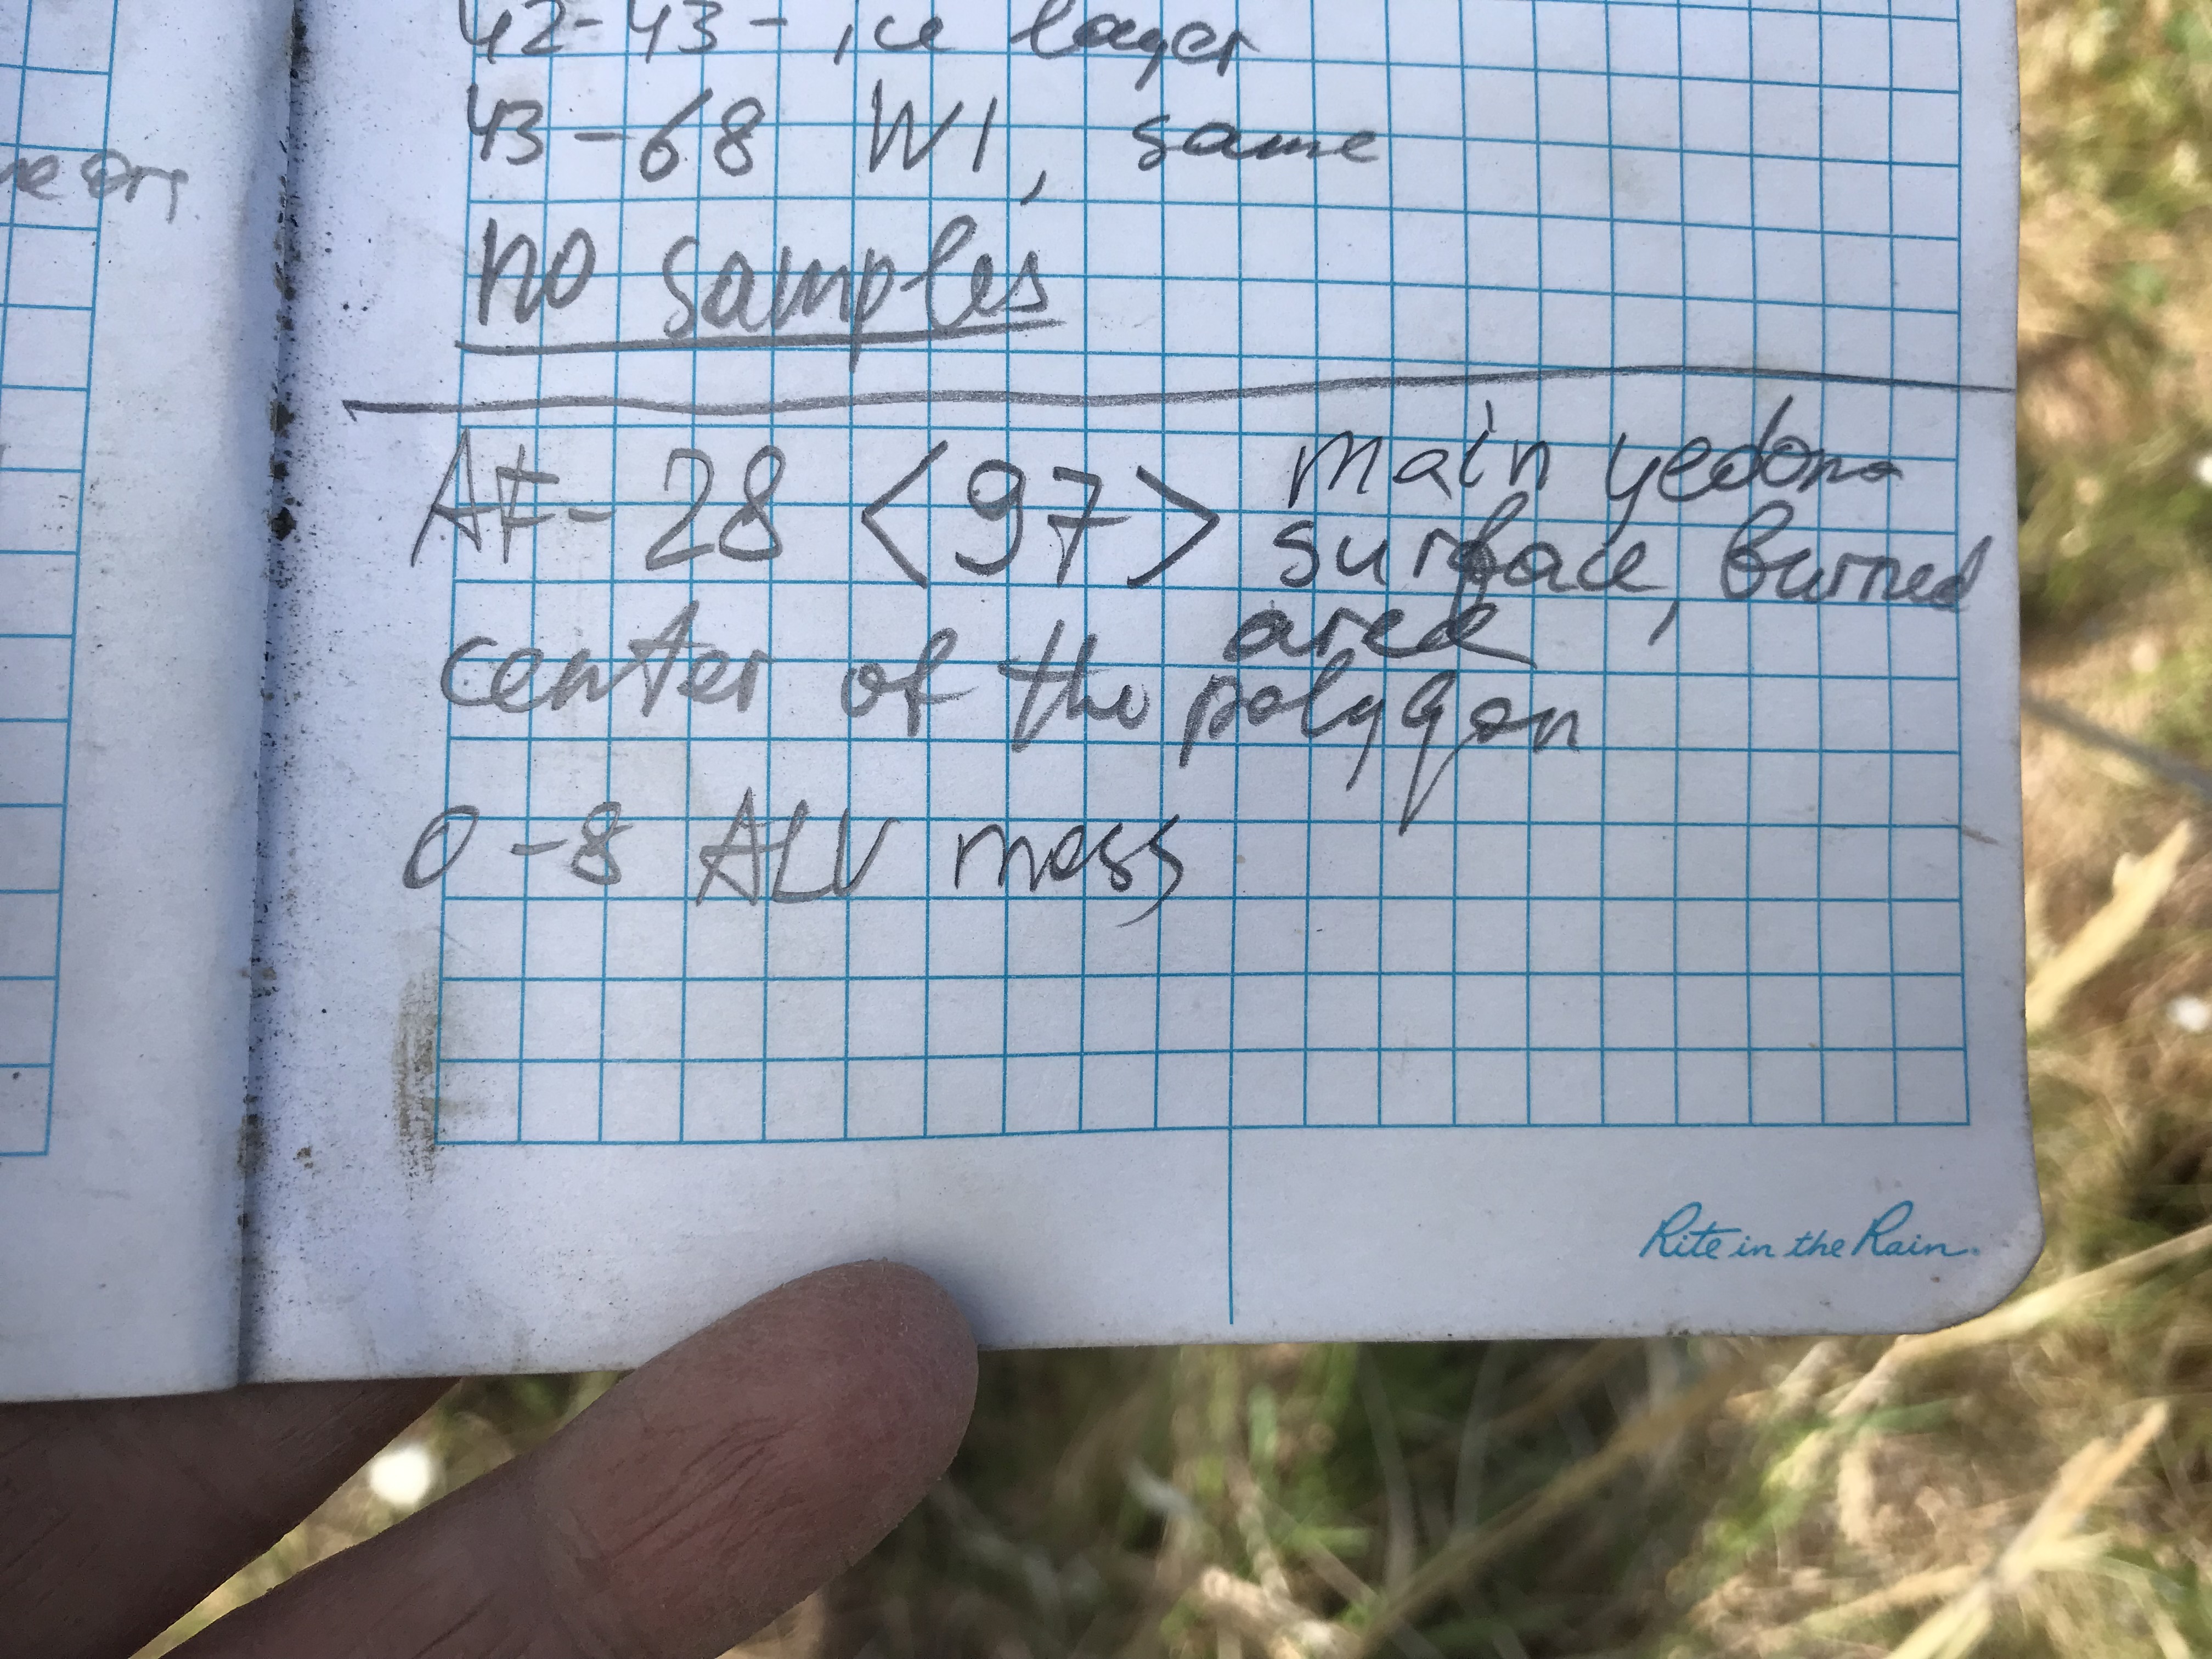 42-43 - ice layer
43-68 WI, same
no samples
AF-28 <97> main yedoma
surface, burned
area
center of the polygon
0-8 ALV moss
Rite in the Rain.